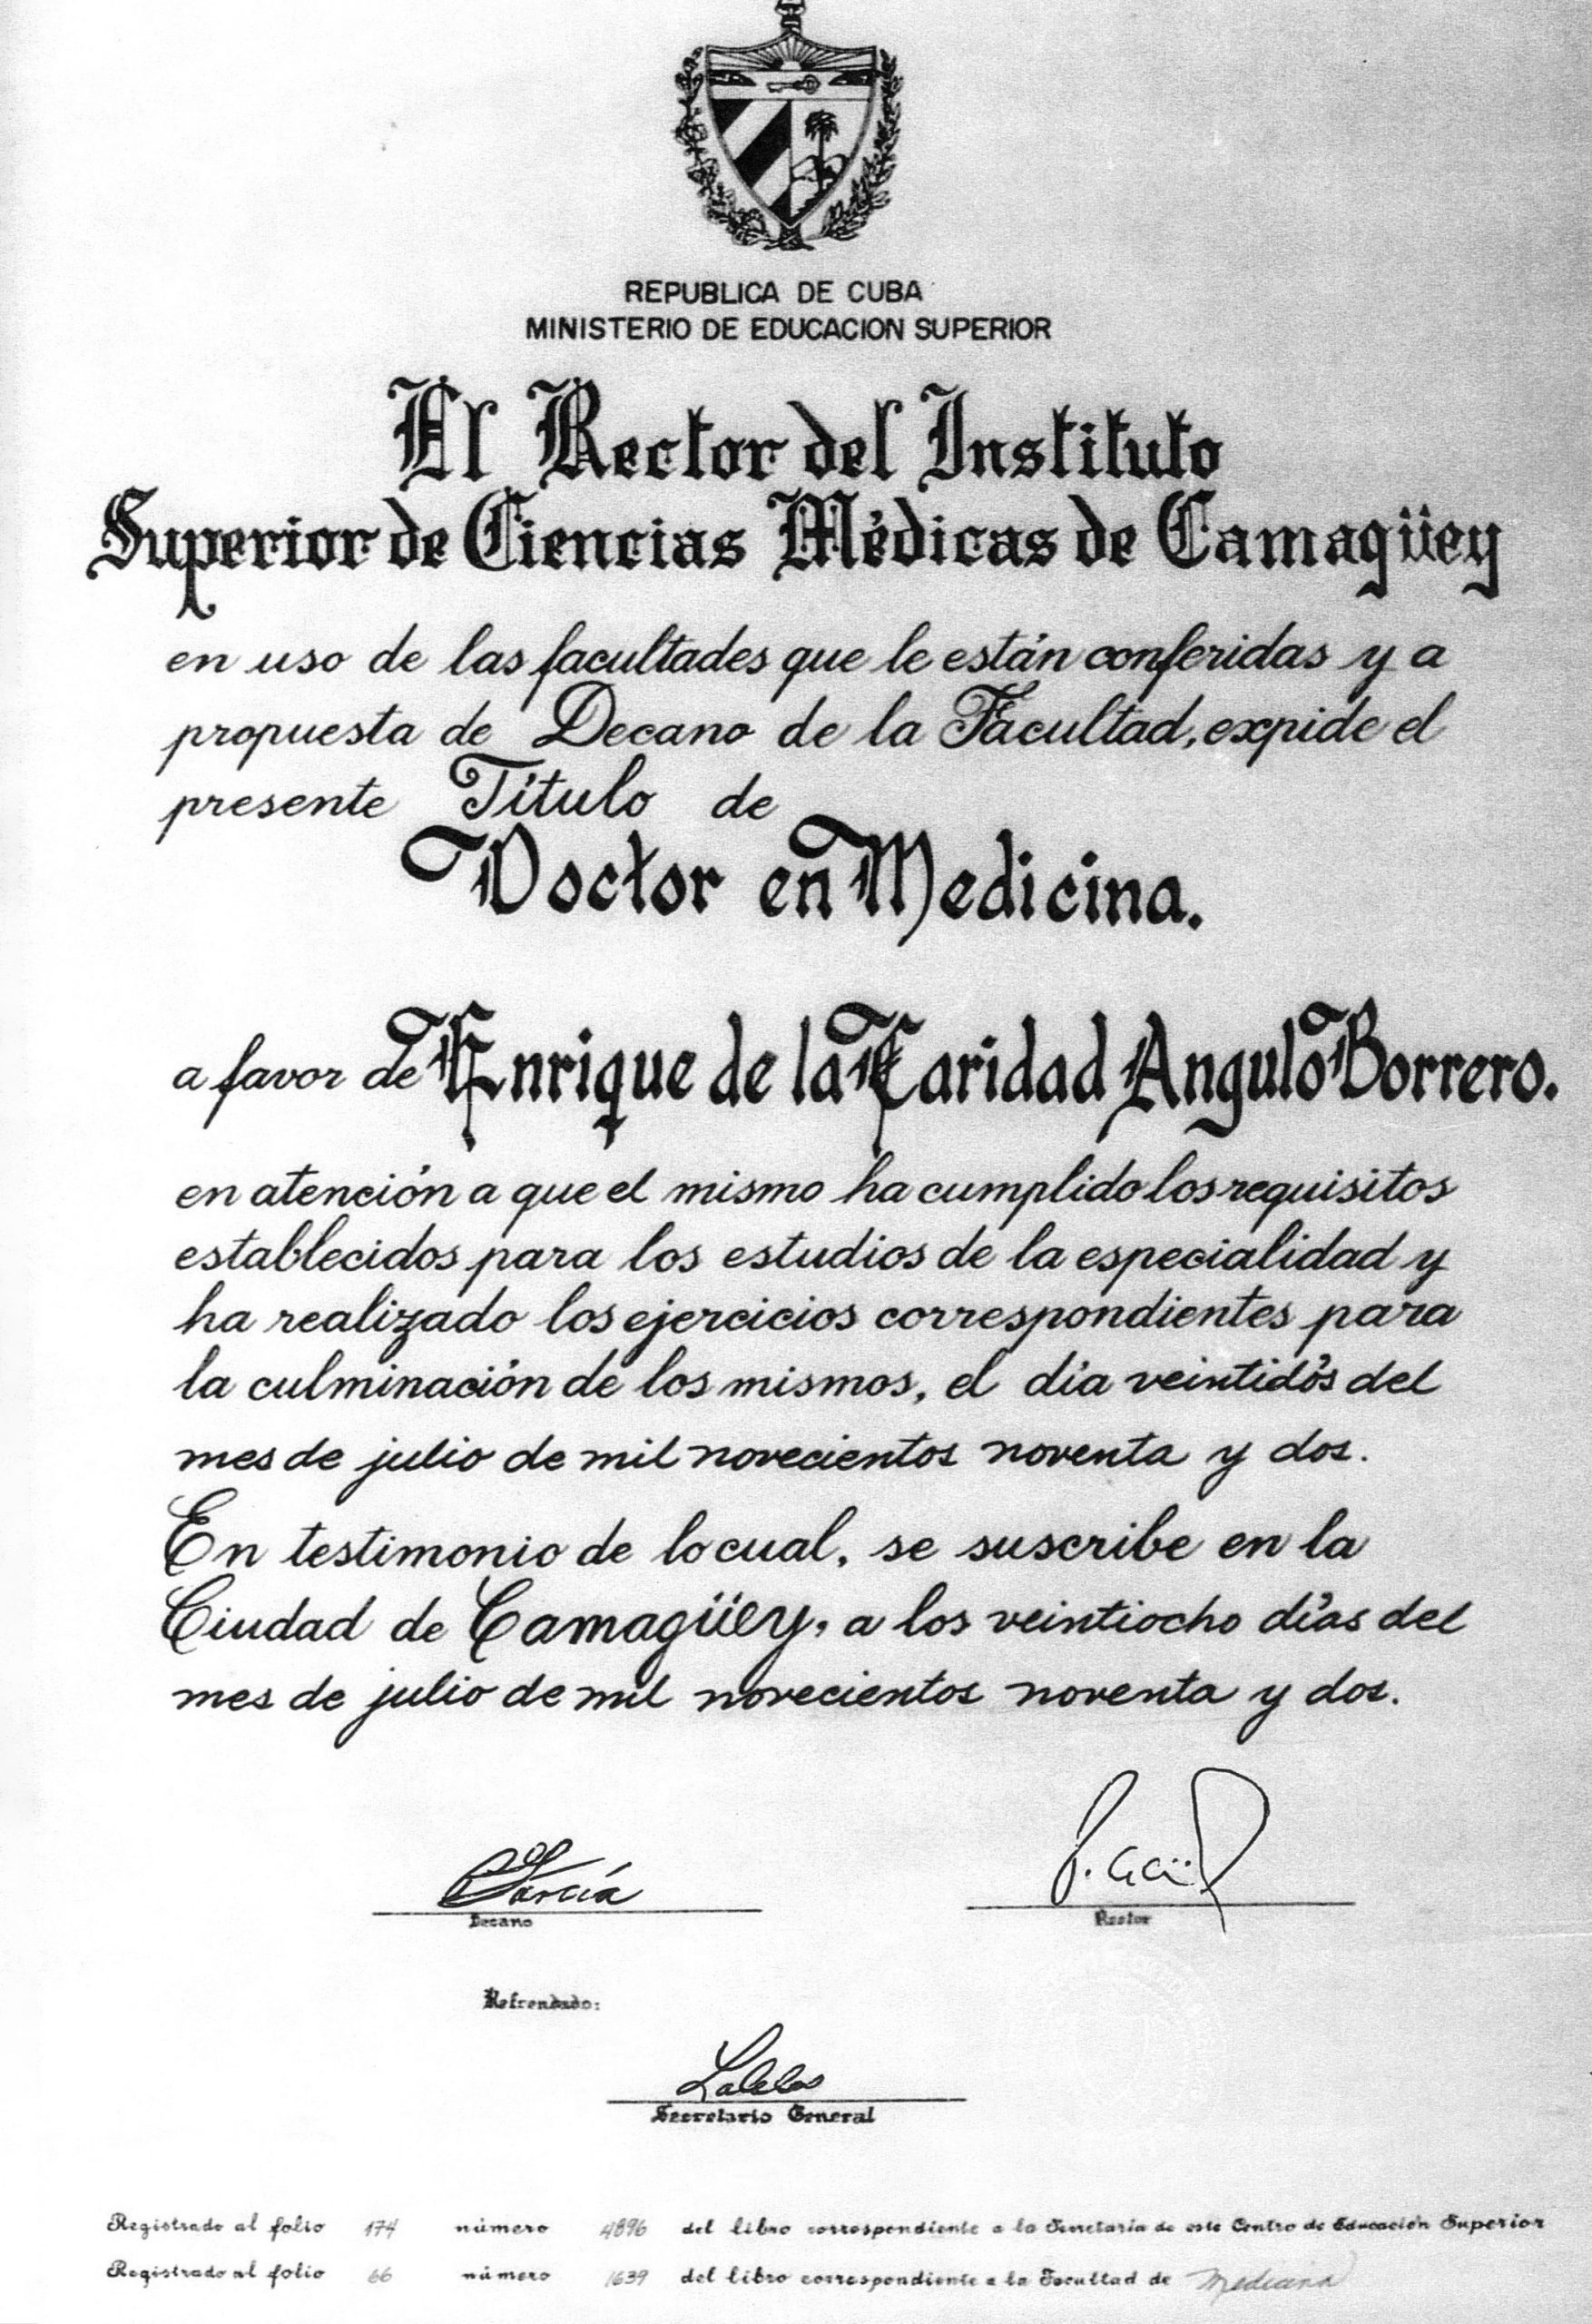 REPUBLICA DE CUBA
MINISTERIO DE EDUCACION SUPERIOR
El Rector del Instituto
Superior de Ciencias Médicas de Camagüey
en uso de las facultades que le están conferidas y a
propuesta de Decano de la Facultad, expide el
presente Título de
Doctor en Medicina.
a favor de Enrique de la Caridad Angulo Borrero.
en atención a que el mismo ha cumplido los requisitos
establecidos para los estudios de la especialidad y
ha realizado los ejercicios correspondientes para
la culminación de los mismos, el día veintidós del
mes de julio de mil novecientos noventa y dos.
En testimonio de lo cual, se suscribe en la
Ciudad de Camagüey, a los veintiocho días del
mes de julio de mil novecientos noventa y dos.
García
Decano
Rector
Refrendado:
Secretario General
Registrado al folio 174 número 4896 del libro correspondiente a la Secretaría de este Centro de Educación Superior
Registrado al folio 66 número 1639 del libro correspondiente a la Facultad de Medicina